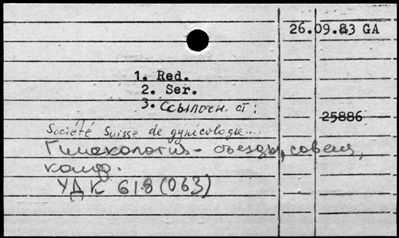 26.09.83 GA
1. Red.
2. Ser.
3. Ссылочн. от:
25886
Société Suisse de gynécologie...
Гинекология - съезды, совещ,
конф.
УДК 618(063)